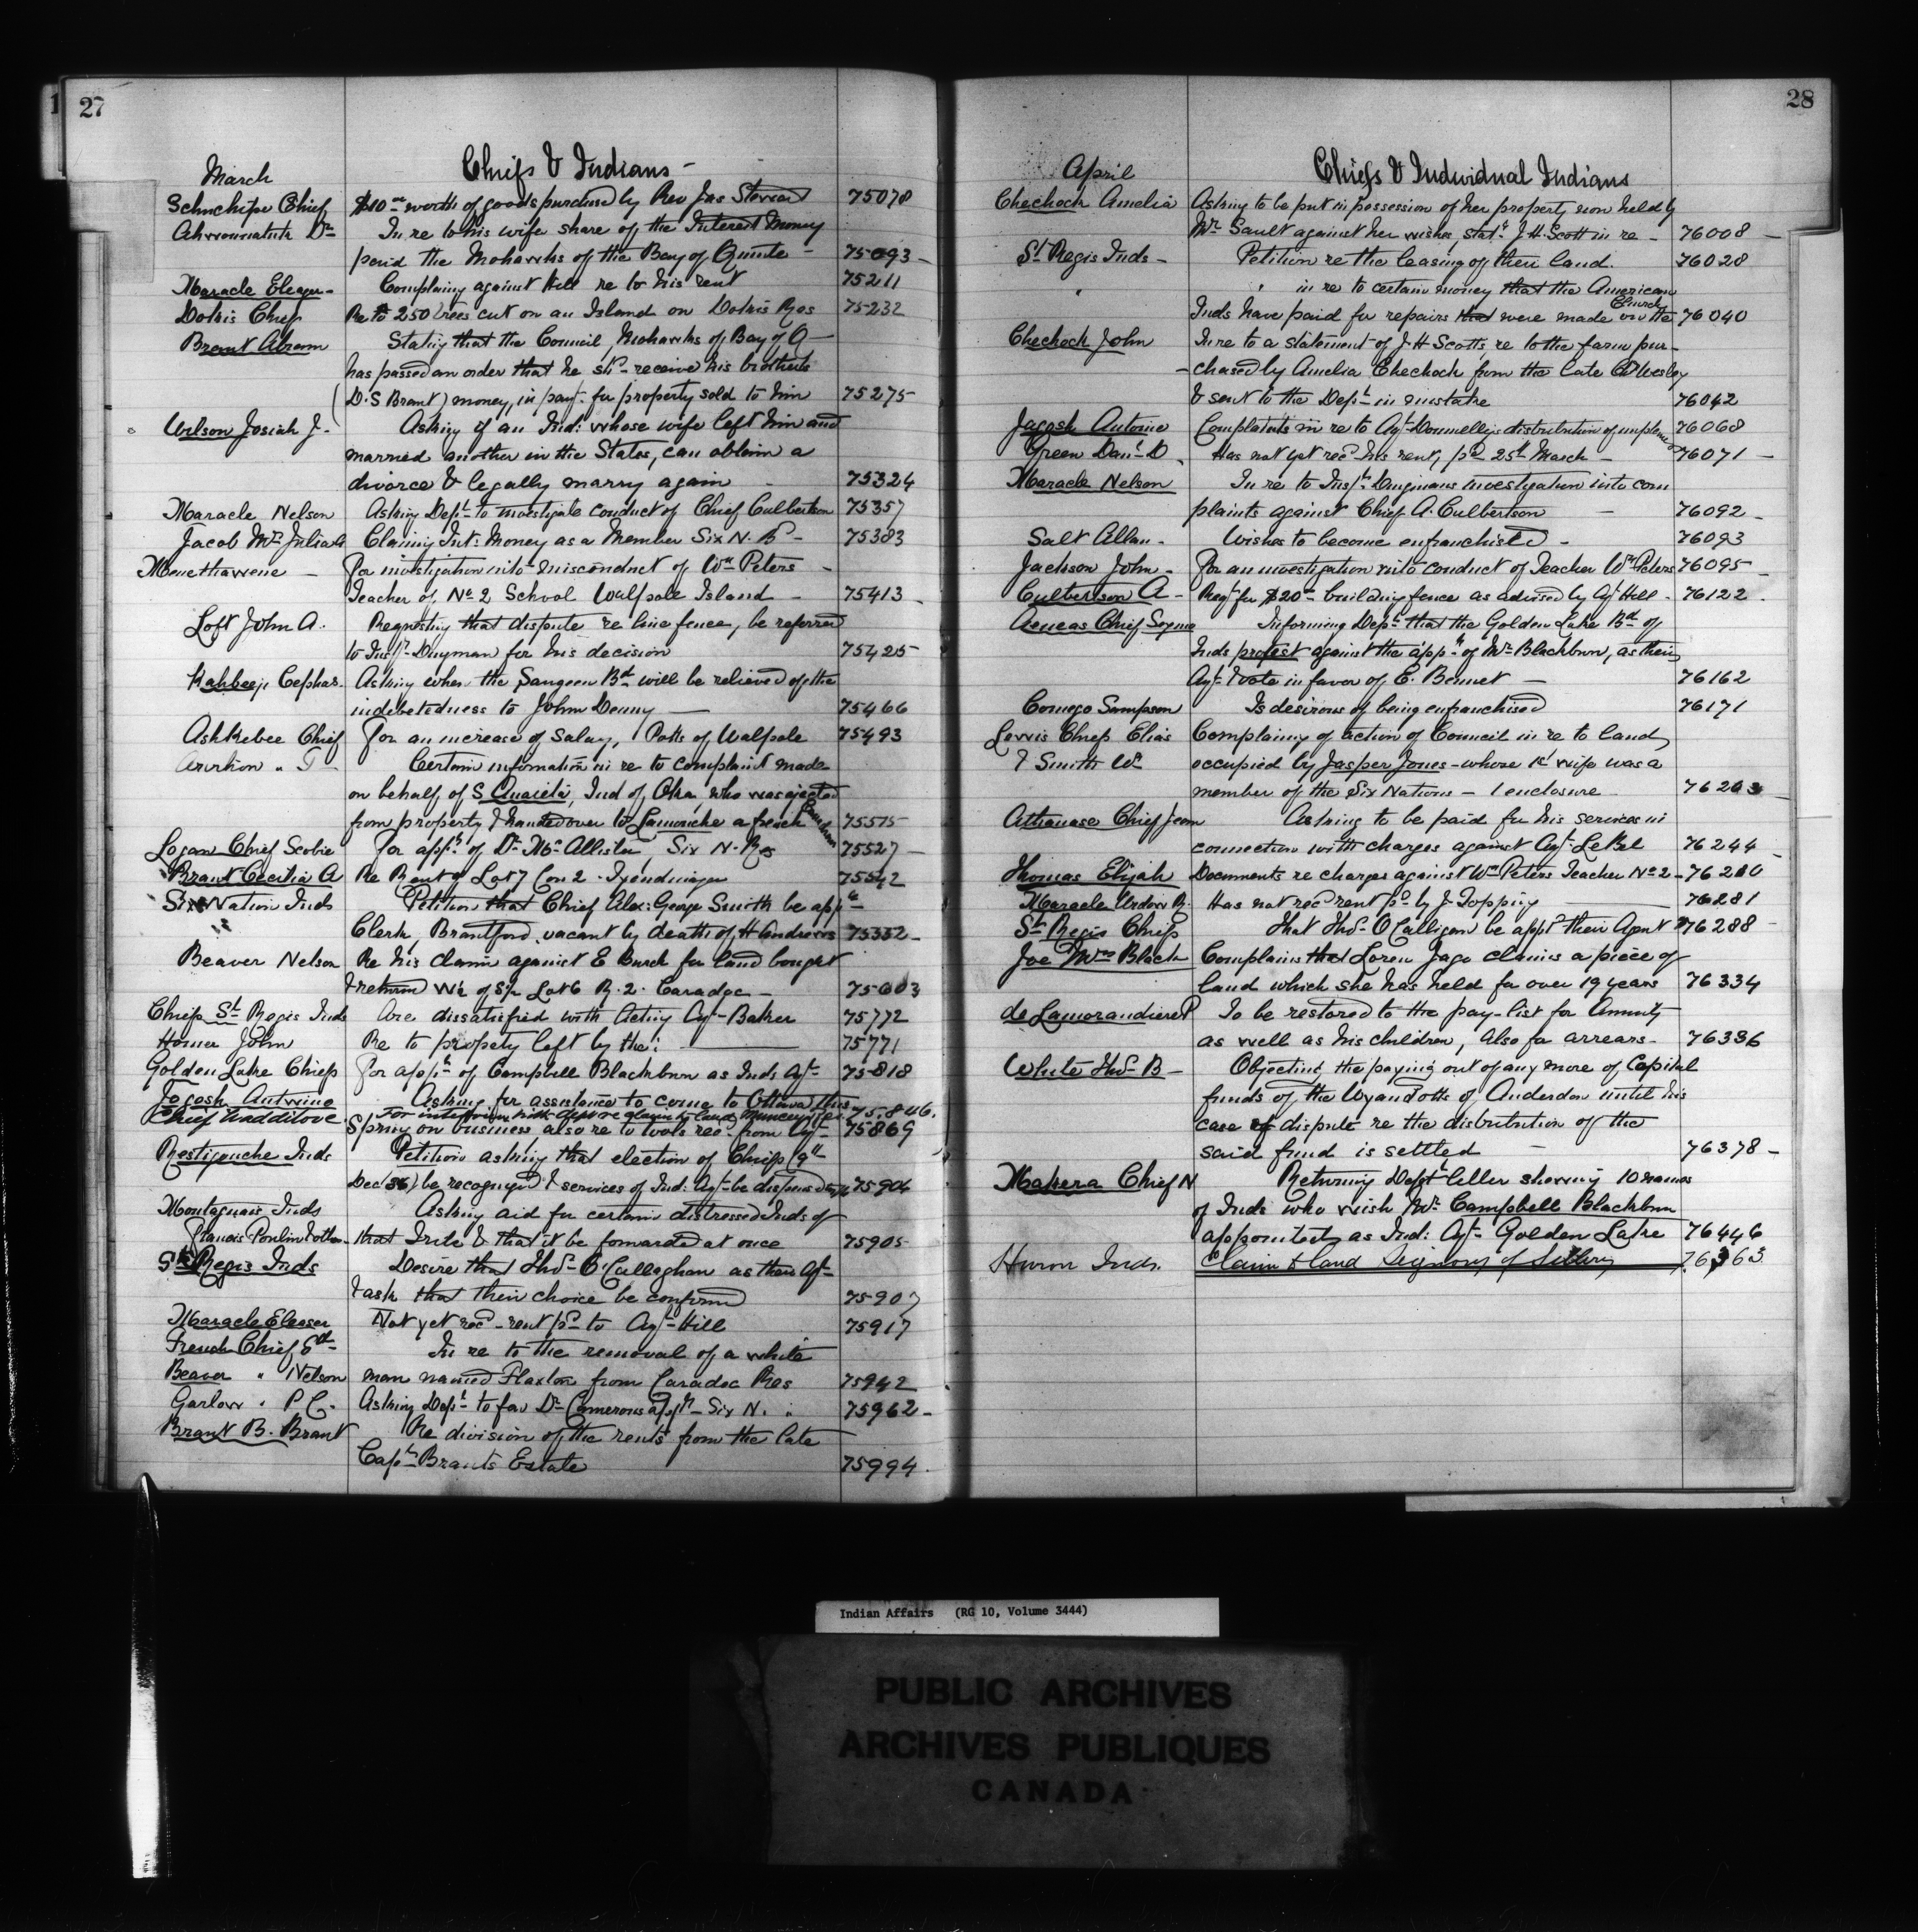 27
March
Chiefs & Indians -
Chief $10 worth of goods purchased by Rev Jas 75078
In re to his wife share of the Interest Money
paid the Mohawks of the Bay of Quinte - 75093 -
Maracle Complaing against Hill re to his rent 75211
Dokis Chief Re to 250 trees cut on an Island on Dokis Res 75232
Brant Abram Stating that the Council, Mohawks of Bay of Q -
has passed an order that he shd receive his brothers
(D.S Brant) money, in payt for property sold to him 75275
Wilson Josiah J. Asking if an Ind: whose wife left him and
married another in the States, can obtain a
divorce & legally marry again - 75324
Maracle Nelson Asking Dept to investigate conduct of Chief Culbertson 75357
Jacob Mrs Julia A Claiming Int: Money as a Member Six N. B - 75383
Menethawene - For investigation into misconduct of Wm Peters -
Teacher of No 2 School Walpole Island - 75413 -
Loft John A. Requesting that dispute re line fence, be referred
to Inspr Dingman for his decision 75425
Kahbeeje Cephas. Asking when the Saugeen Bd will be relieved of the
indebetedness to John Denny - 75466
Ashkebee Chief For an increase of Salary, Potts of Walpole 75493
Certain information in re to complaint made
on behalf of S , Ind of Oka, who was ejected
from property & handed over to Lamouche a french 75515
Logan Chief Scobie For appt of Dr McAllister, Six N. Res 75527 -
Brant Cecilia A Re Rent of Lot 7 Con 2 - Tyendinaga 75542
Six Nation Inds Petition that Chief Alex: George Smith be appt -
Clerk, Brantford, vacant by death of H Andrews 75552 -
Beaver Nelson Re his claim against E Burch for land bought
& return W½ of S½ Lot 6 R. 2. Caradoc - 75603
Chiefs St Regis Inds Are dissatisfied with Acting Agt Baker 75772
Homer John Re to propety left by the: 75771
Golden Lake Chiefs For appt of Campbell Blackburn as Inds Agt 75818
Jogosh Antoine Asking for assistance to come to Ottawa this
Chief Waddilove. For interview with dept re claim to land Munceytown 75,846.
Spring on business also re to tools recd from Agt 75869
Restigouche Inds Petition asking that election of Chiefs (9th
Dec/86) be recognized & services of Ind: Agt be dispensed with 75904
Montagnais Inds Asking aid for certain distressed Inds of
Francois Poulin & others that Tribe & that it be forwarded at once 75905
St Regis Inds Desire that Thos O'Callaghan as their Agt
& ask that their choice be confirmed 75907
Maracle Eleaser Not yet recd rent pd to Agt Hill 75917
French Chief Ed In re to the removal of a white
Beaver " Nelson man named Flaxton from Caradoc Res 75942
Garlow " P C. Asking Dept to fav Dr Camerons appt - Six N. " 75962 -
Brant B. Brant Re division of the rents from the late
Capt Brants Estate 75994
28
April
Chiefs & Individual Indians
Chechock Amelia Asking to be put in possession of her property now held by
Mr Sault against her wishes, statt J.H. Scott in re - 76008 -
St Regis Inds - Petition re the leasing of their land. 76028
" " in re to certain money that the American
Inds have paid for repairs that were made on the Church 76040
Chechock John In re to a statement of J H Scotts, re to the farm pur-
-chased by Amelia Chechock from the late Wesley
& sent to the Dept in mistake 76042
Jagosh Antoine Complaints in re to Agt Donnellys distribution of implements 76068
Green Danl D. Has not yet recd his rent, pd 25th March - 76071 -
Maracle Nelson In re to Inspr Dingmans investigation into com
plaints against Chief A. Culbertson - 76092 -
Salt Allan - Wishes to become enfranchised - 76093
Jackson John - For an investigation into conduct of Teacher Wm Peters 76095 -
Culbertson A - Reqt for $20 - building fence as advised by Agt Hill - 76122 -
Aeneas Chief Informing Dept that the Golden Lake Bd of
Inds protest against the appt of Mr Blackburn, as their
Agt & vote in favor of E. Bennet - 76162
Comego Sampson Is desirous of being enfranchised 76171
Lewis Chief Elias Complaining of action of Council in re to land,
& Smith Wm occupied by Jasper Jones - whose 1st wife was a
member of the Six Nations - 1 enclosure 76203 -
Athanase Chief Jean Asking to be paid for his services in
connection with charges against Agt LeBel 76244 -
Thomas Elijah Documents re charges against Wm Peters Teacher No 2 - 76280
Maracle Has not recd rent pd by J. Topping 76281
St Regis Chiefs That Thos O Calligan be appd their Agent 76288 -
Joe Mrs Black Complains that Loren Jago claims a piece of
land which she has held for over 19 years 76334
de Lamorandiere P To be restored to the pay-list for Annuity
as well as his children, Also for arrears - 76336
White Thos B - Objecting the paying out of any more of Capital
funds of the Wyandotts of Anderdon until his
case of dispute re the distribution of the
said fund is settled - 76378 -
Makera Chief N Returning Dept letter showing 10 names
of Inds who wish Mr Campbell Blackburn
appointed as Ind: Agt Golden Lake 76446
Huron Inds. Claim to land Seigniory of Sillery 76363
Indian Affairs (RG 10, Volume 3444)
PUBLIC ARCHIVES
ARCHIVES PUBLIQUES
CANADA